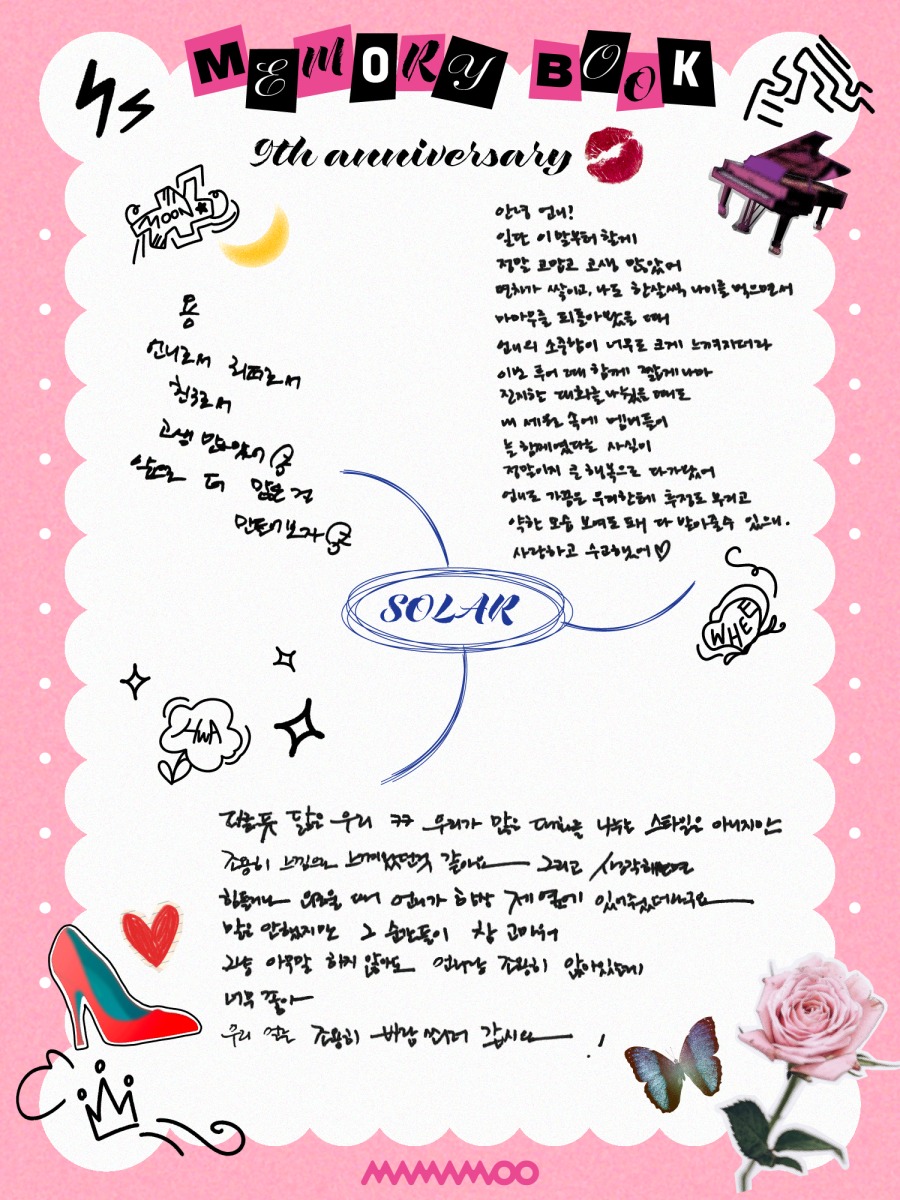 MEMORY BOOK
9th anniversary
MOON
용
언니로서 리더로서
친구로서
고생 많았어
앞으로 더 많은 걸
만들어보자
안녕 언니!
일단 이 말부터 할게
정말 고맙고 고생 많았어
연차가 쌓이고, 나도 한살씩 나이를 먹으면서
마마무를 되돌아봤을 때
언니의 소중함이 너무도 크게 느껴지더라
이번 투어 때 함께 짧게나마
진지한 대화를 나눴을 때도
내 세월 속에 멤버들이
늘 함께였다는 사실이
정말이지 큰 행복으로 다가왔어
언니도 가끔은 우리한테 투정도 부리고
약한 모습 보여도 돼 다 받아줄수 있으니.
사랑하고 수고했어♡
SOLAR
WHEE
HWA
다른듯 닮은 우리 ㅋㅋ 우리가 많은 대화를 나누는 스타일은 아니지만
조용히 느낌으로 느껴졌던것 같아요 그리고 생각해보면
힘들거나 외로울 때 언니가 항상 제 옆에 있어줬더라구요
말은 안했지만 그 순간들이 참 고마워
그냥 아무말 하지 않아도 언니랑 조용히 앉아있는게
너무 좋아
우리 얼른 조용히 바람 쐬러 갑시다 !
MAMAMOO